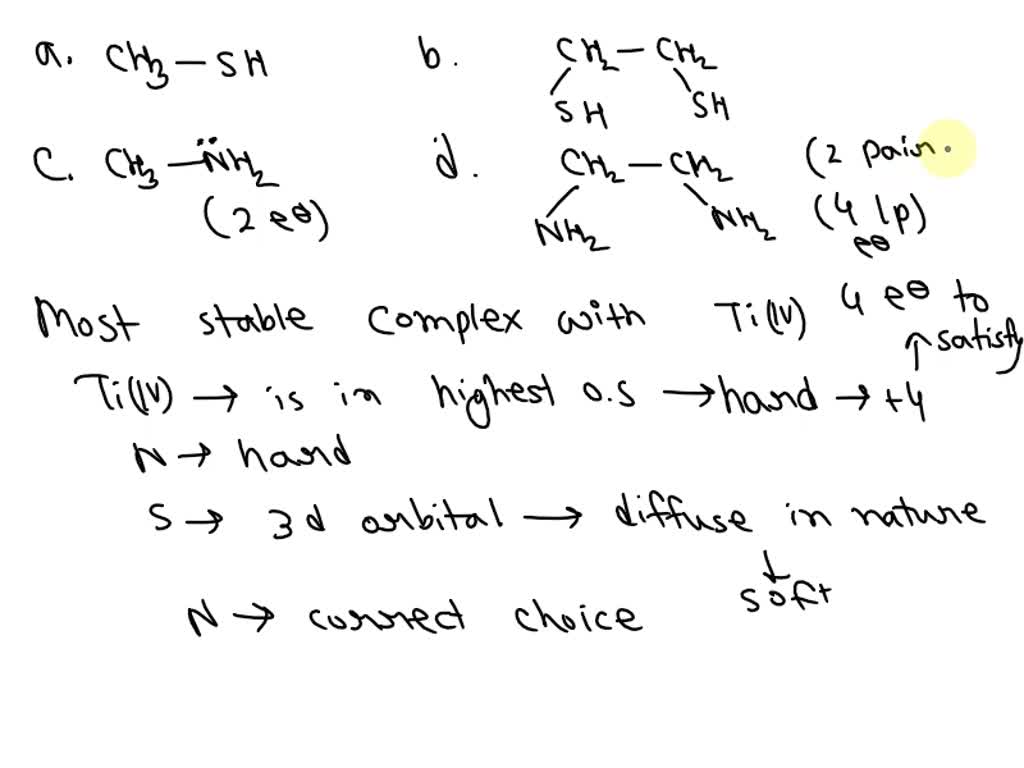 a. CH3 – SH b. CH2 – CH2
SH SH
C. CH3 – N̈H2 d. CH2 – CH2 (2 pair
(2 e⊖) NH2 NH2 (4 lp)
e⊖
Most stable complex with Ti(IV) 4 e⊖ to
↑ satisfy
Ti(IV) → is in highest o.s → hard → +4
N → hard
S → 3d orbital → diffuse in nature
↓
soft
N → correct choice